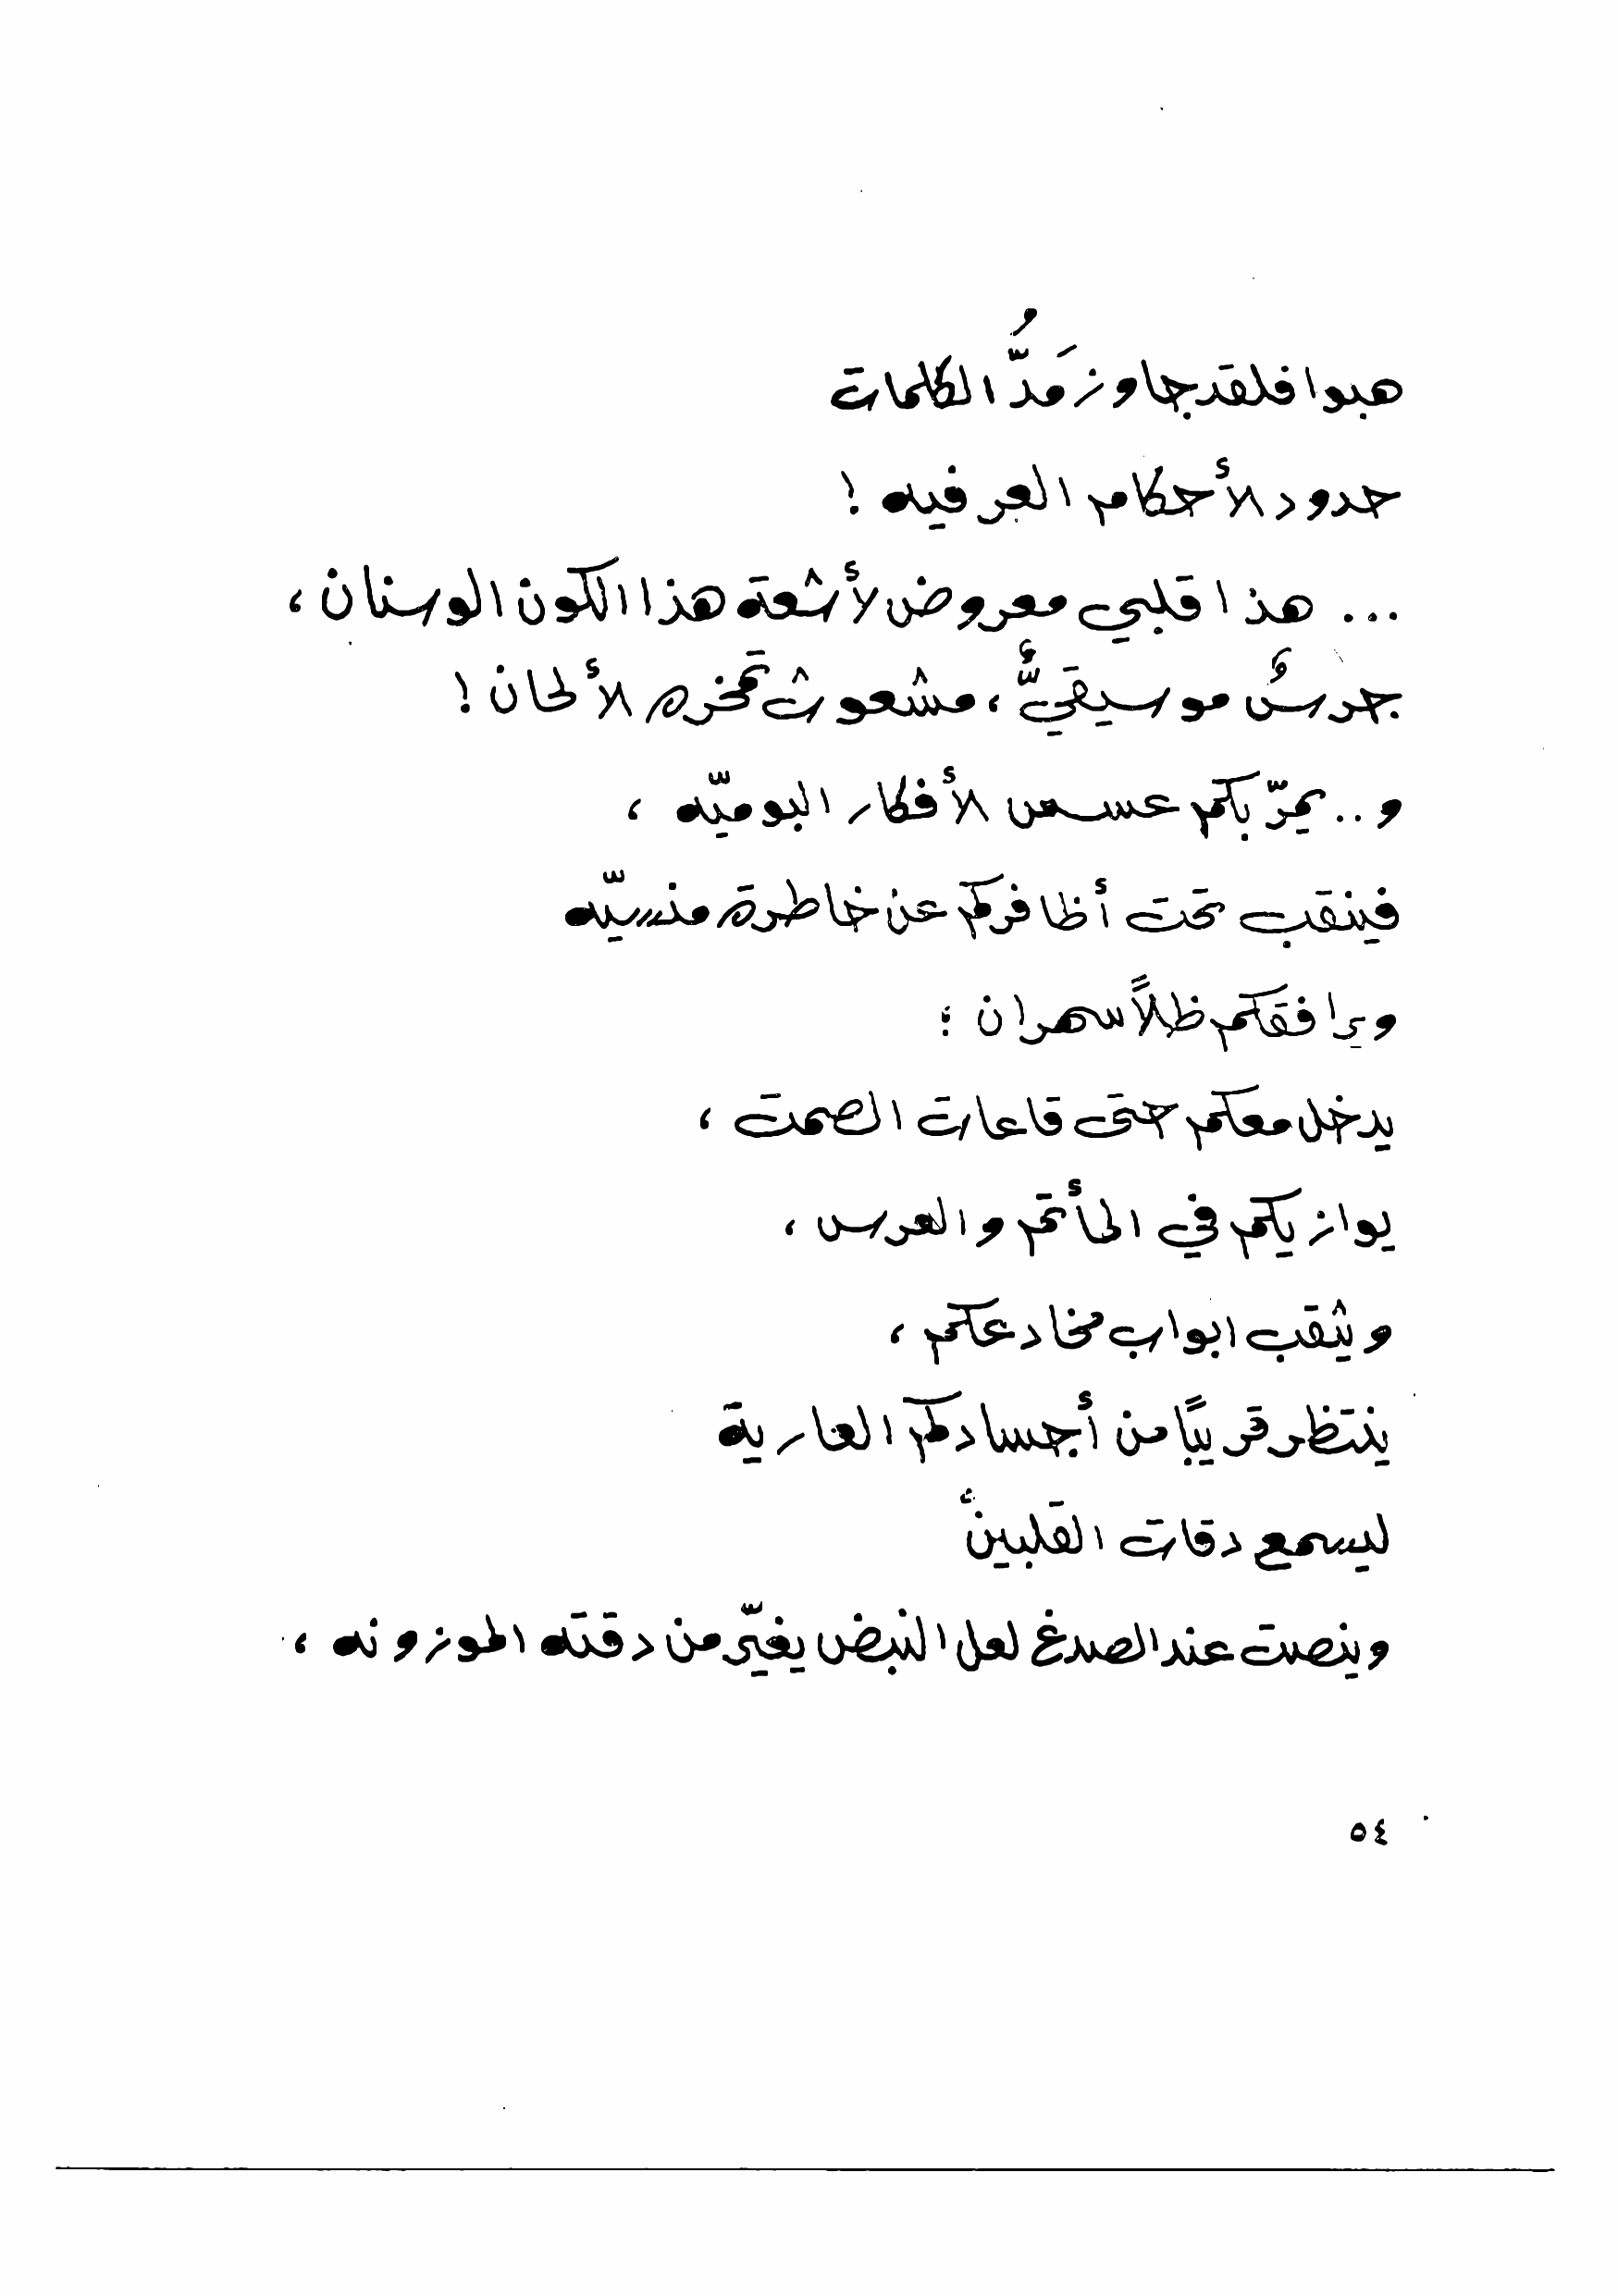 هبوا فلقد جاوز مَدُّ الكلمات
حدود الأحكام العرفيه !
... هذا قلبي معروض لأشعة هذا الكون الوسنان ،
جرسٌ موسيقيٌّ ، مشعوث تمخره الألحان !
و .. يمرّ بكم عسس الأفكار البوميّه ،
فينقب تحت أظافركم عن خاطرة منسيّه
ويرافقكم ظلاً سهران ؛
يدخل معكم حتى قاعات الصمت ،
يوازيكم في المأتم والعرس ،
ويثقب ابواب مخادعكم ،
ينتظر قريبًا من أجسادكم العارية
ليسمع دقات القلبينْ
وينصت عند الصدغ لعل النبض يغيّر من دقته الموزونه ،
٥٤